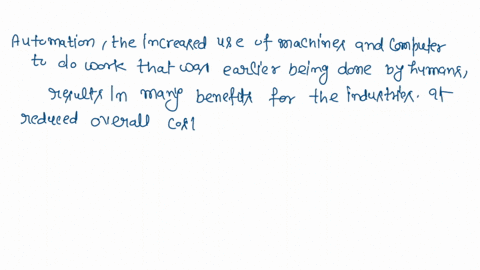 Automation, the increased use of machines and computer
to do work that was earlier being done by humans,
results in many benefits for the industries. at
reduced overall cost